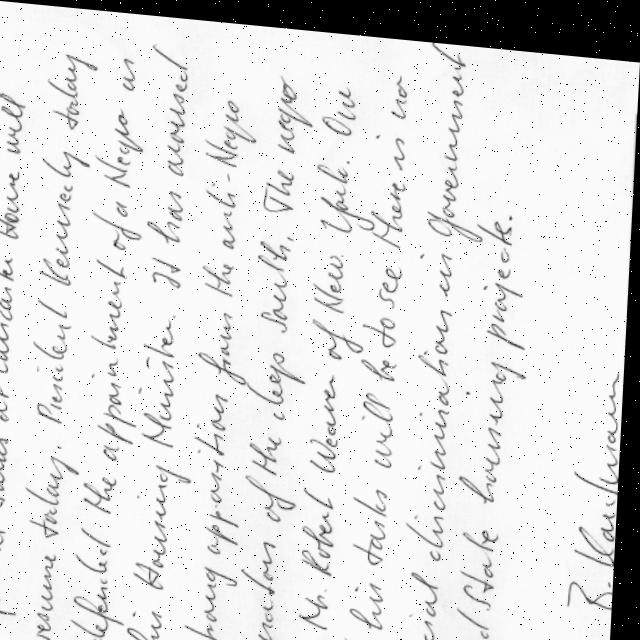 at Lancaster House will
resume today. President Kennedy today
defended the appointment of a Negro as
his Housing Minister. It has aroused
strong opposition from the anti-Negro
senators of the deep South. The negro
is Mr. Robert Weaver of New York. One
of his tasks will be to see there is no
racial discrimination in Government
and State housing projects.